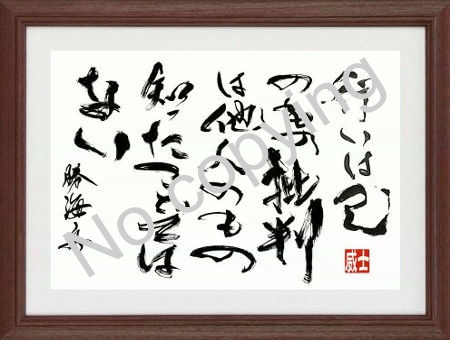 行いは己
の 批判
は他人のもの
知ったことでは
ない
勝海舟
威士
No copying